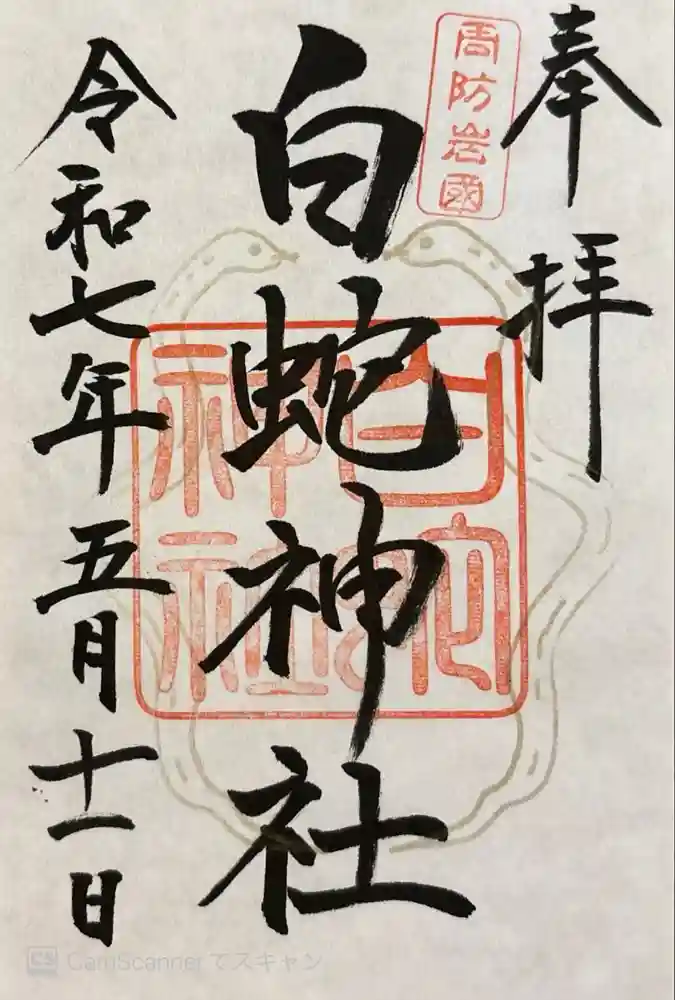 奉拝
周防岩國
白蛇神社
白蛇
神社
令和七年五月十一日
CS CamScanner でスキャン